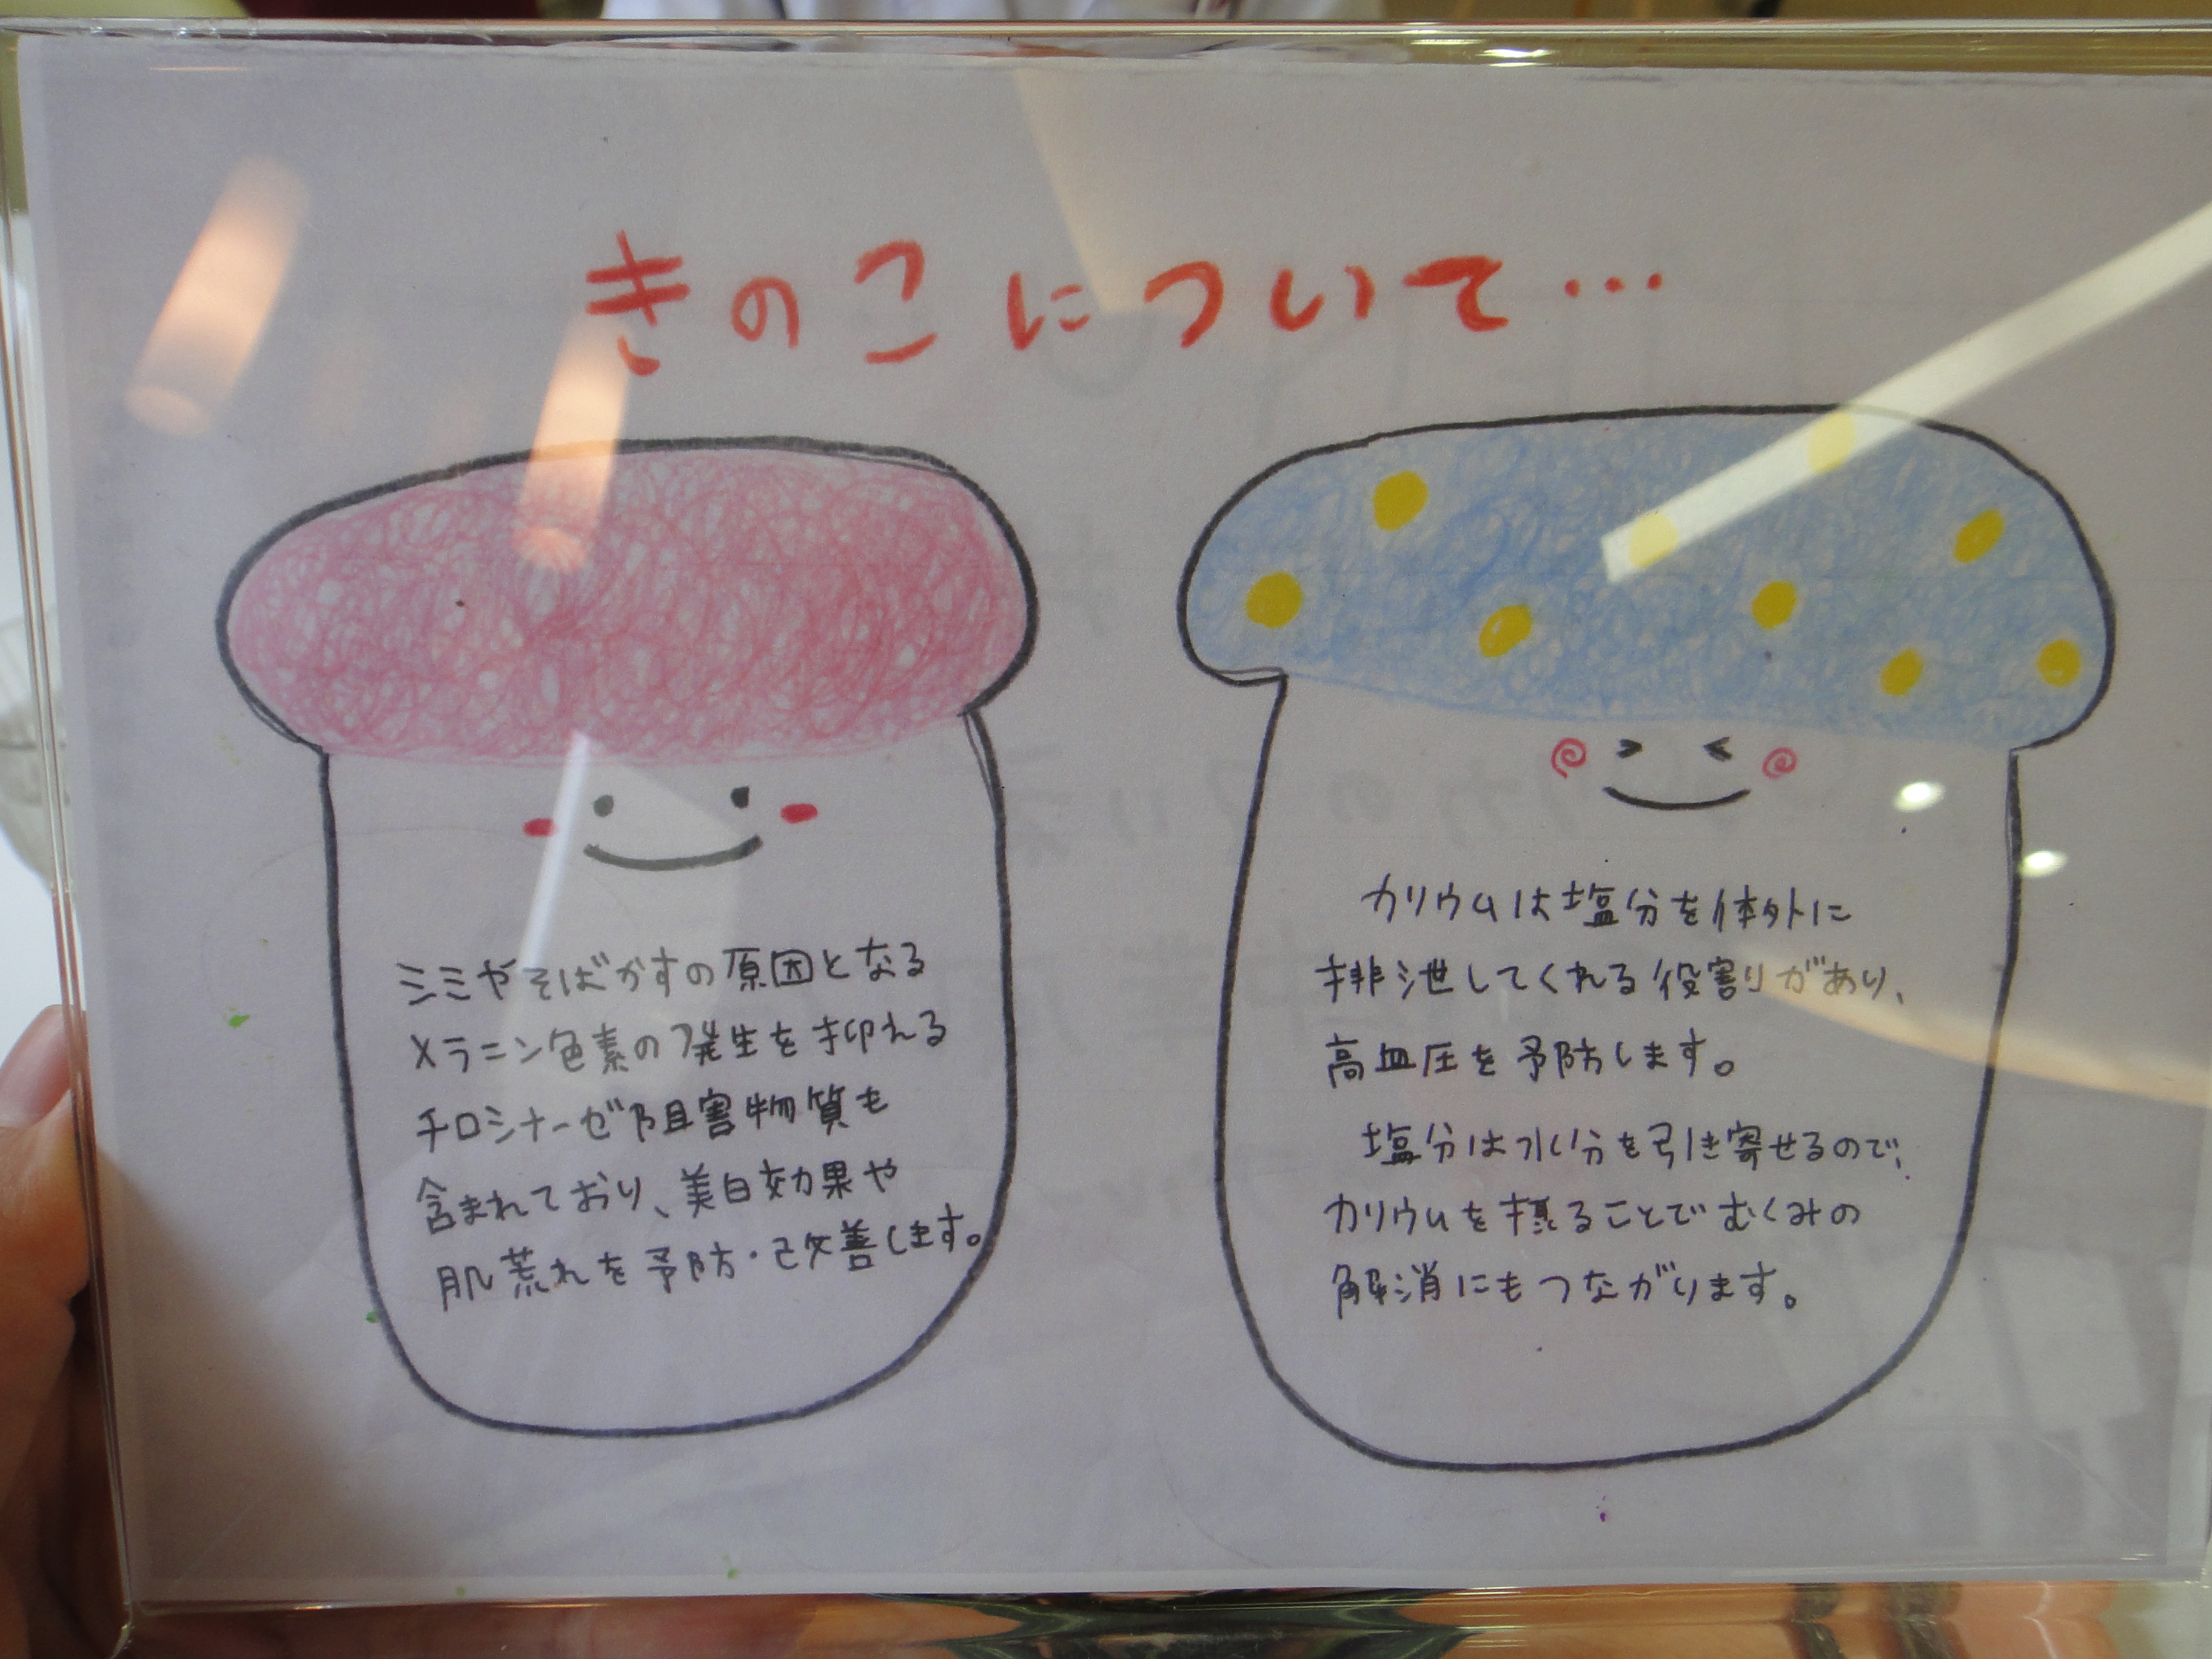 きのこについて…
シミやそばかすの原因となる
メラニン色素の発生を抑える
チロシナーゼ阻害物質も
含まれており、美白効果や
肌荒れを予防・改善します。
カリウムは塩分を体外に
排泄してくれる役割りがあり、
高血圧を予防します。
塩分は水分を引き寄せるので、
カリウムを摂ることでむくみの
解消にもつながります。